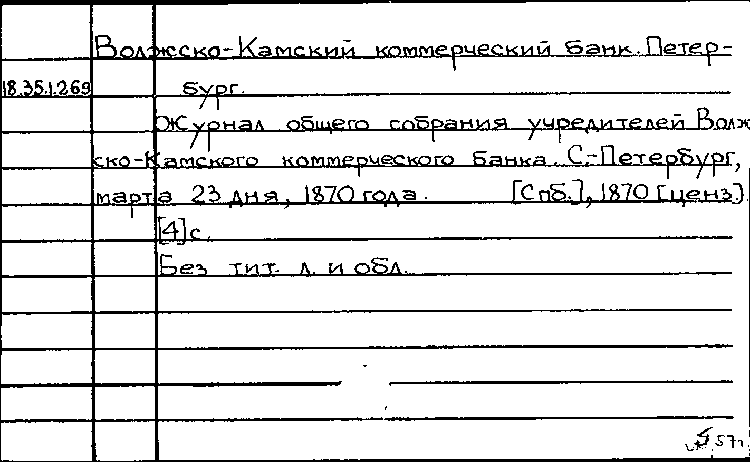 Волжско-Камский коммерческий банк. Петер-
18.35.1.269 бург.
Журнал общего собрания учредителей Волж
ско-Камского коммерческого банка. С.-Петербург,
марта 23 дня, 1870 года. [Спб.], 1870 [ценз.]
[4] с.
Без тит. л. и обл.
57г